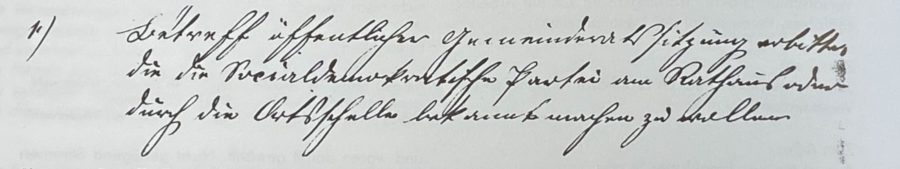 1.) Betreff öffentlicher Gemeinderatssitzung erbittet
die die Socialdemokratische Partei am Rathaus oder
durch die Ortsschelle bekannt machen zu wollen